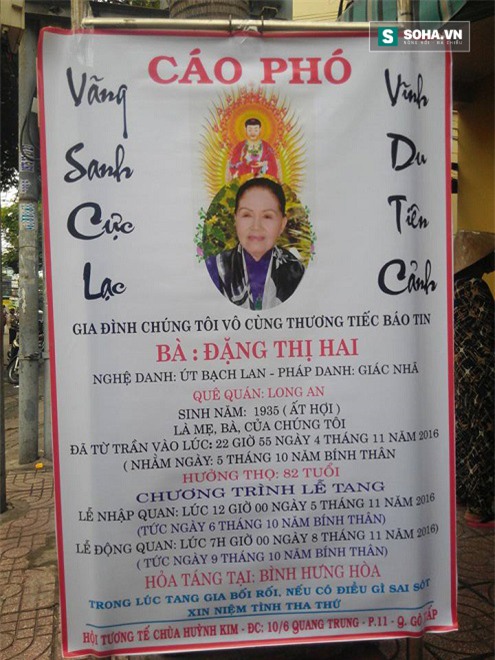 SOHA.VN
CÁO PHÓ
Vãng
Sanh
Cực
Lạc
Vĩnh
Du
Tiên
Cảnh
GIA ĐÌNH CHÚNG TÔI VÔ CÙNG THƯƠNG TIẾC BÁO TIN
BÀ : ĐẶNG THỊ HAI
NGHỆ DANH: ÚT BẠCH LAN - PHÁP DANH: GIÁC NHÃ
QUÊ QUÁN: LONG AN
SINH NĂM: 1935 ( ẤT HỢI )
LÀ MẸ, BÀ, CỦA CHÚNG TÔI
ĐÃ TỪ TRẦN VÀO LÚC: 22 GIỜ 55 NGÀY 4 THÁNG 11 NĂM 2016
( NHẰM NGÀY: 5 THÁNG 10 NĂM BÍNH THÂN
HƯỞNG THỌ: 82 TUỔI
CHƯƠNG TRÌNH LỄ TANG
LỄ NHẬP QUAN: LÚC 12 GIỜ 00 NGÀY 5 THÁNG 11 NĂM 2016
(TỨC NGÀY 6 THÁNG 10 NĂM BÍNH THÂN)
LỄ ĐỘNG QUAN: LÚC 7H GIỜ 00 NGÀY 8 THÁNG 11 NĂM 2016)
( TỨC NGÀY 9 THÁNG 10 NĂM BÍNH THÂN)
HỎA TÁNG TẠI: BÌNH HƯNG HÒA
TRONG LÚC TANG GIA BỐI RỐI, NẾU CÓ ĐIỀU GÌ SAI SÓT
XIN NIỆM TÌNH THA THỨ
HỘI TƯƠNG TẾ CHÙA HUỲNH KIM - ĐC: 10/6 QUANG TRUNG - P.11 - Q. GÒ VẤP